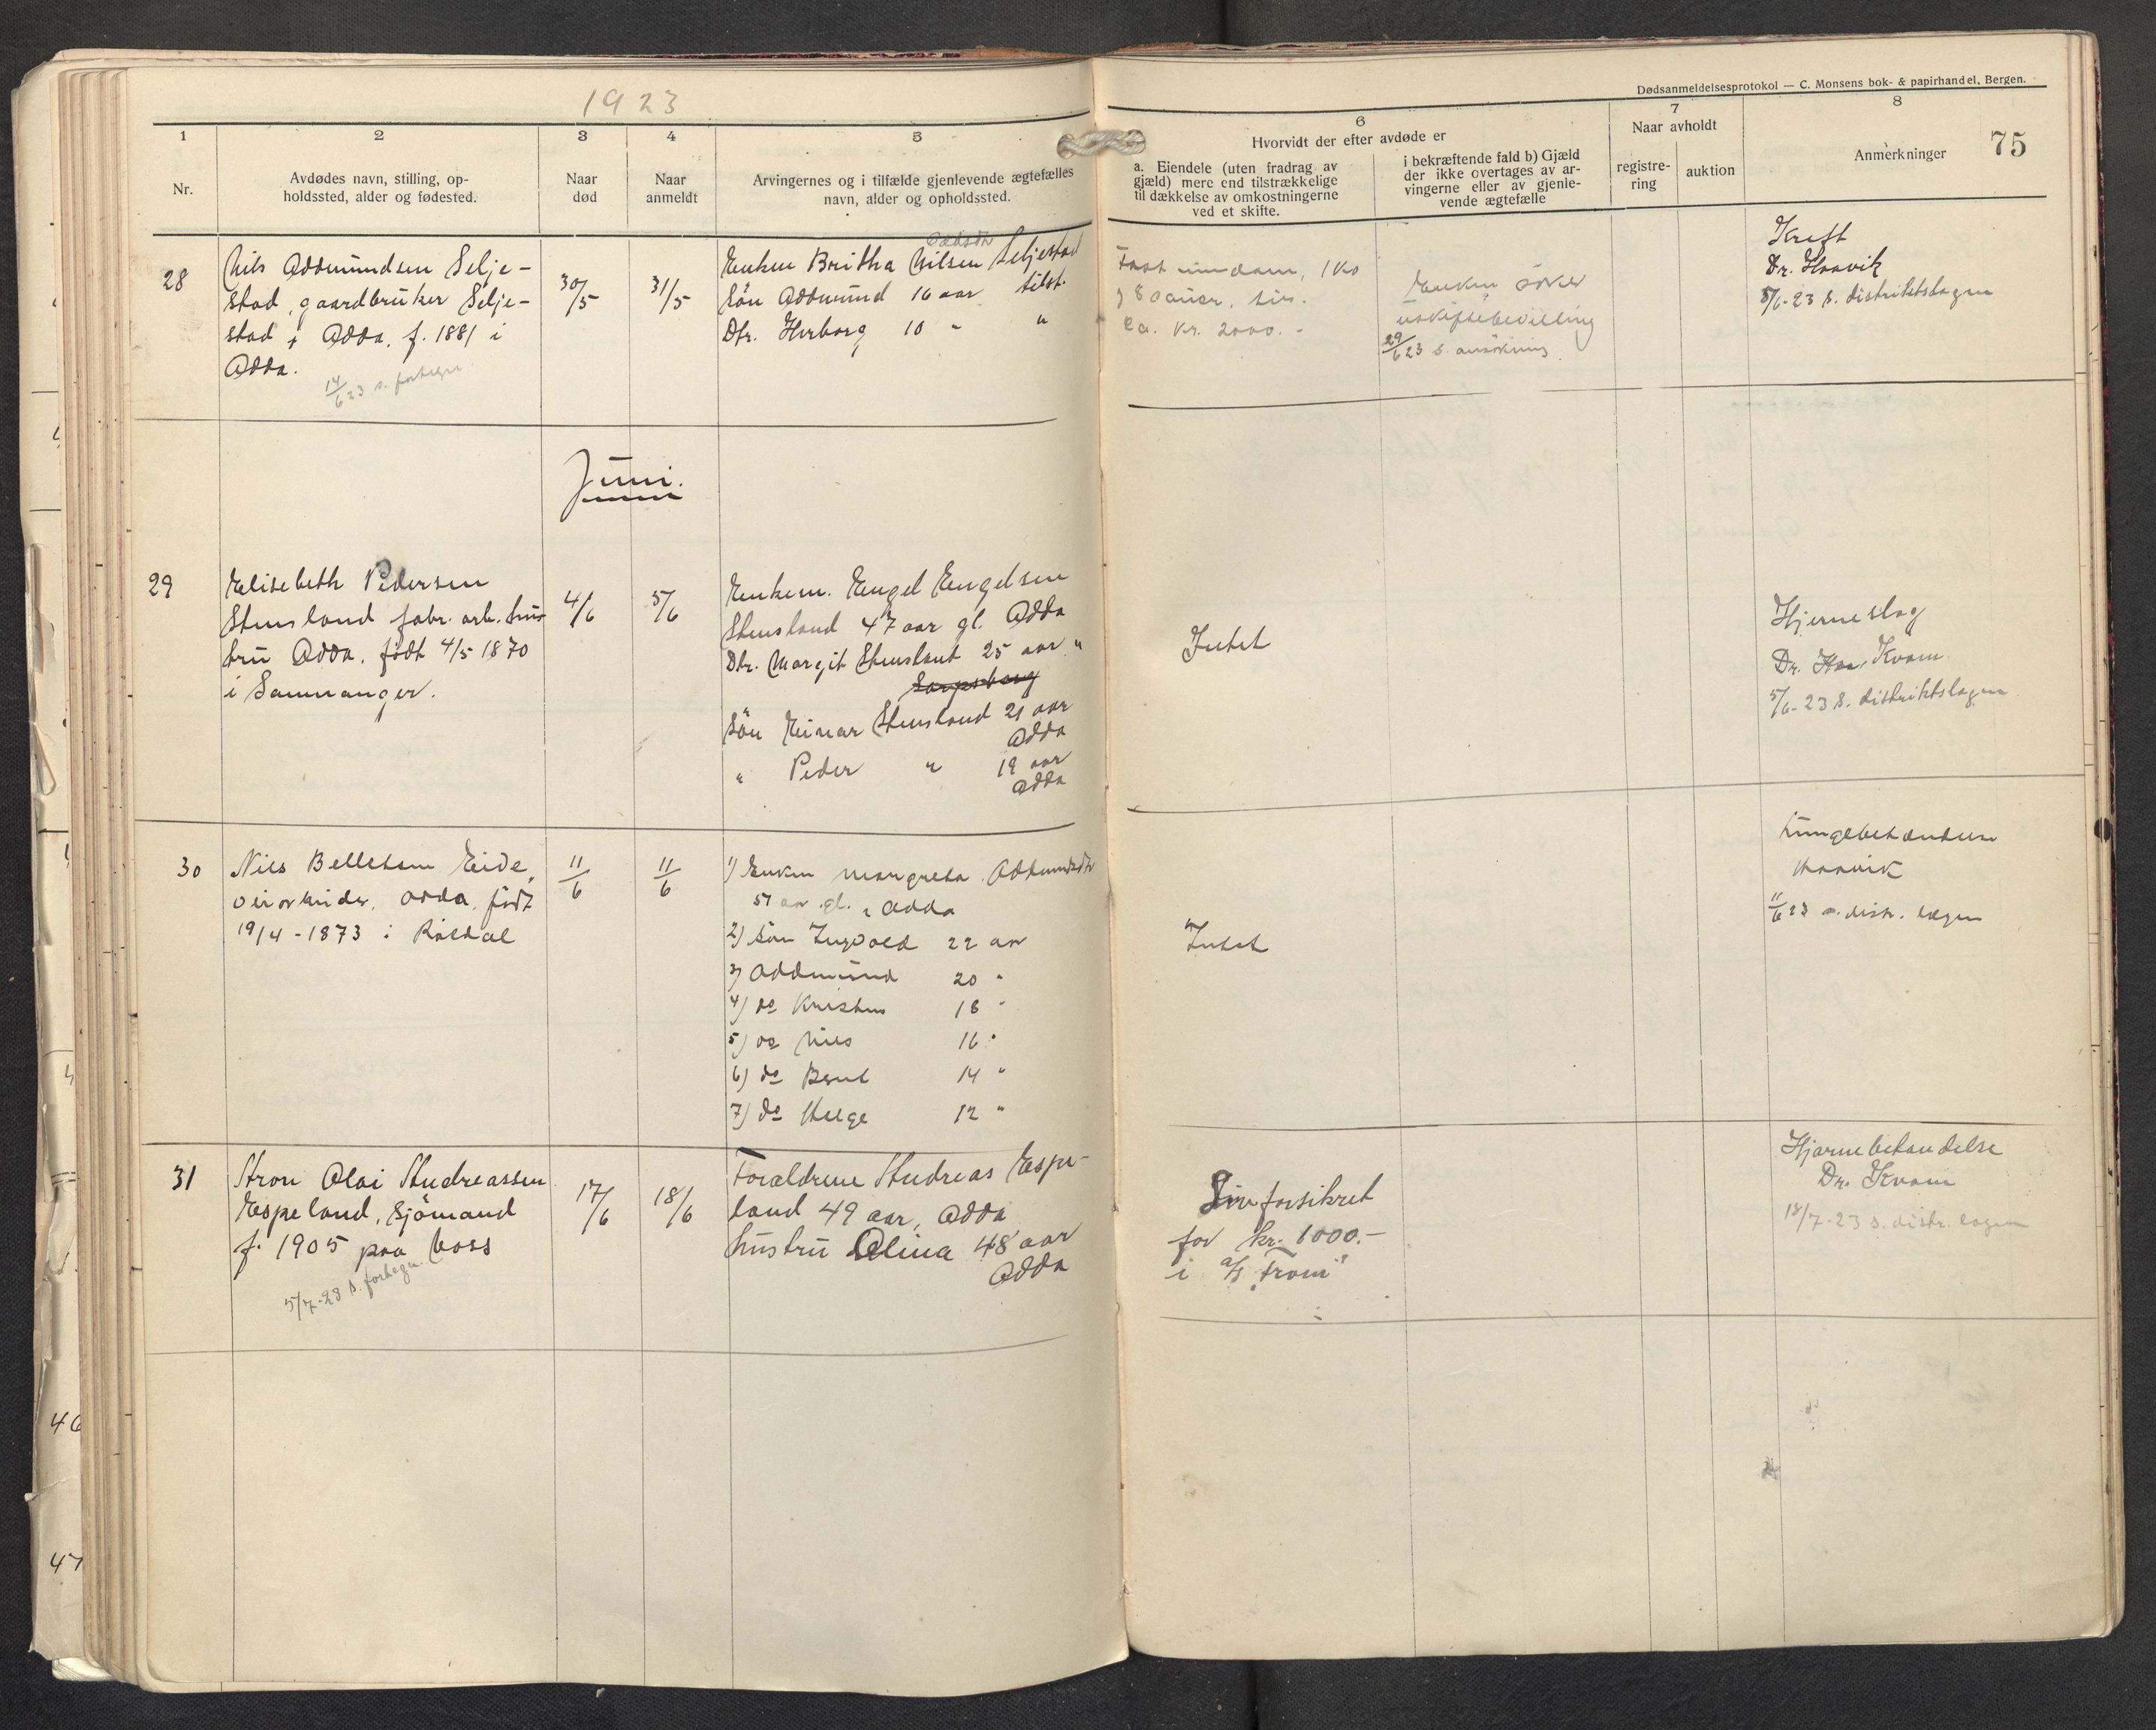 1923
Dødsanmeldelsesprotokol — C. Monsens bok- & papirhandel, Bergen.
75
1
2
3
4
5
6
7
8
Nr.
Avdødes navn, stilling, op-
holdssted, alder og fødested.
Naar
død
Naar
anmeldt
Arvingernes og i tilfælde gjenlevende ægtefælles
navn, alder og opholdssted.
Hvorvidt der efter avdøde er
a. Eiendele (uten fradrag av
gjæld) mere end tilstrækkelige
til dækkelse av omkostningerne
ved et skifte.
i bekræftende fald b) Gjæld
der ikke overtages av ar-
vingerne eller av gjenle-
vende ægtefælle
Naar avholdt
registre-
ring
auktion
Anmerkninger
28
Nils Oddmundsen Selje-
stad, gaardbruker Selje-
stad i Odda. f. 1881 i
Odda.
14/6 23 s. forhegn
30/5
31/5
Enken Britha Nilsen Seljestad
Sön Oddmund 16 aar tilst.
Dtr. Herborg 10 " "
Fast eiendom, 1 ko
ca. kr. 2000.-
Enken söker
uskiftebevilling
29/6 23 s. ansökning
Kreft
Dr. Haavik
5/6-23 s. distriktslægen
Juni.
29
Elisebeth Pedersen
Stensland fabr. arb. hus-
tru Odda, født 4/5 1870
i Samnanger.
4/6
5/6
Enkem. Engel Engelsen
Stensland 47 aar gl. Odda
Dtr. Margit Stensland 25 aar "
Sarpsborg
Sön Einar Stensland 21 aar
Odda
" Peder " 19 aar
Odda
Intet
Hjerneslag
Dr. Haa Kvam
5/6-23 s. distriktslægen
30
Nils Belletsen Eide,
Odda, født
19/4-1873 i Röldal
11/6
11/6
1) Enken Margreta Oddmundsdtr
51 aar gl., Odda
2) Sön Ingvald 22 aar
3) Oddmund 20 "
4) do Kristen 18 "
5) do Nils 16 "
6) do Bernt 14 "
7) do Helge 12 "
Intet
Lungebetændelse
Haavik
11/6 23 s. distr. lægen
31
Aron Olai Andreassen
Espeland, Sjömand
f. 1905 paa Voss
5/7-23 s. forhegn.
17/6
18/6
Forældrene Andreas Espe-
land 49 aar, Odda
hustru Olina 48 aar
Odda
Livsforsikret
for kr. 1000.-
i a/s "Fram"
Hjernebetændelse
Dr. Kvam
18/7-23 s. distr. lægen